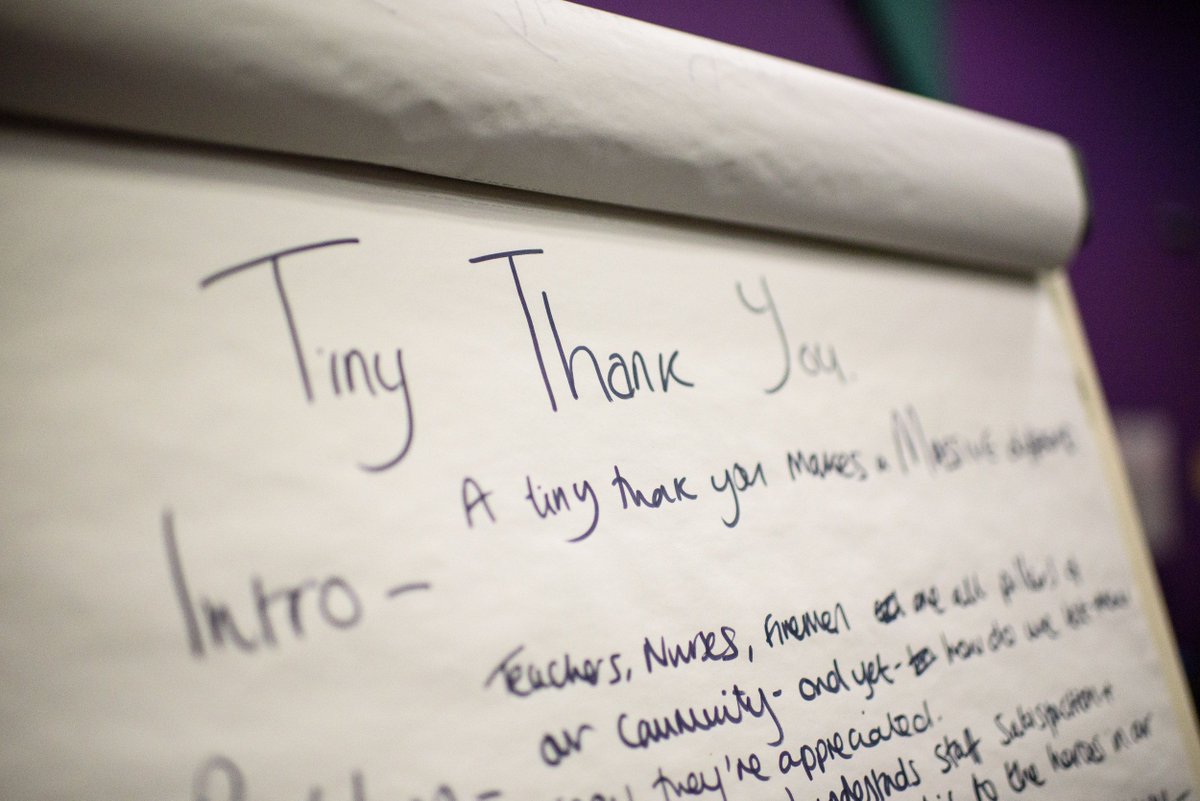 Tiny Thank You.
A tiny thank you makes a Massive
Intro -
Teachers, Nurses, Firemen are all pillars of
our Community - and yet - how do we let them
they're appreciated.
staff satisfaction +
to the heroes in our